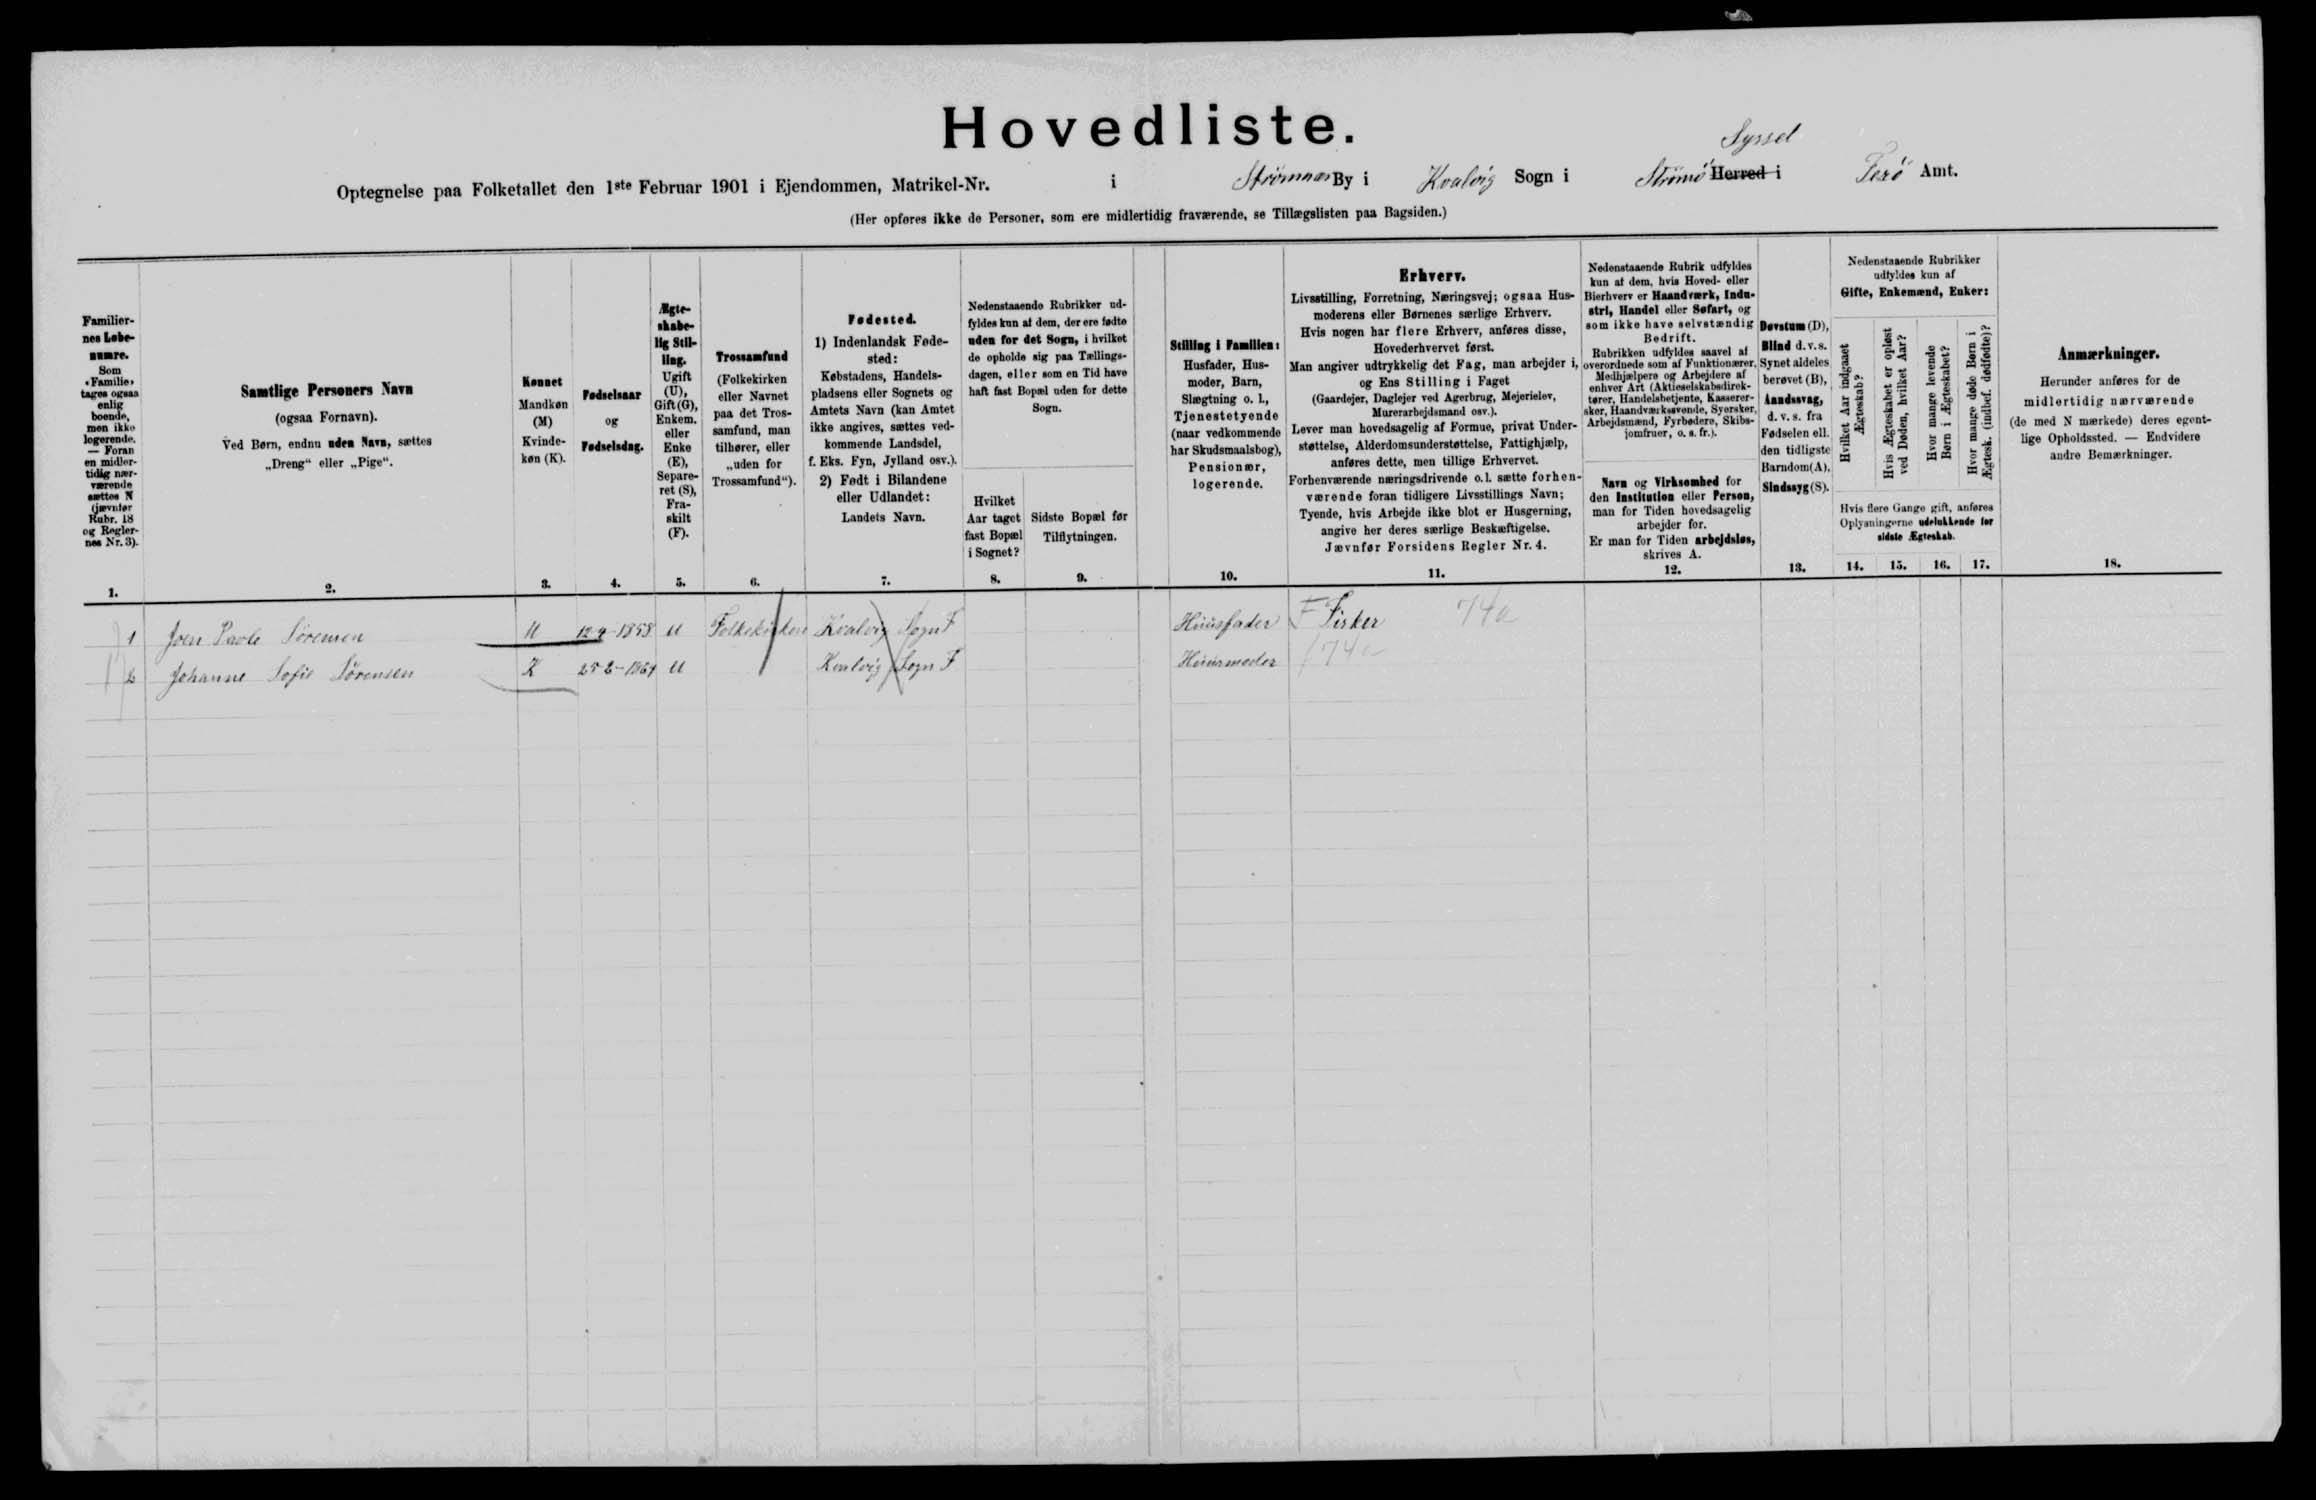 Hovedliste.
Optegnelse paa Folketallet den 1ste Februar 1901 i Ejendommen, Matrikel-Nr. i Strømnæs By i Kvalvig Sogn i Strømö Herred i Syssel Ferö Amt.
(Her opføres ikke de Personer, som ere midlertidig fraværende, se Tillægslisten paa Bagsiden.)
Familier-
nes Løbe-
numre.
Som
«Familie»
tages ogsaa
enlig
boende,
men ikke
logerende.
— Foran
en midler-
tidig nær-
værende
sættes N
(jævnfør
Rubr. 18
og Regler-
nes Nr. 3).
1.
Samtlige Personers Navn
(ogsaa Fornavn).
Ved Børn, endnu uden Navn, sættes
„Dreng“ eller „Pige“.
2.
Kønnet
Mandkøn
(M)
Kvinde-
køn (K).
3.
Fødselsaar
og
Fødselsdag.
4.
Ægte-
skabe-
lig Stil-
ling.
Ugift
(U),
Gift (G),
Enkem.
eller
Enke
(E),
Separe-
ret (S),
Fra-
skilt
(F).
5.
Trossamfund
(Folkekirken
eller Navnet
paa det Tros-
samfund, man
tilhører, eller
„uden for
Trossamfund“).
6.
Fødested.
1) Indenlandsk Føde-
sted:
Købstadens, Handels-
pladsens eller Sognets og
Amtets Navn (kan Amtet
ikke angives, sættes ved-
kommende Landsdel,
f. Eks. Fyn, Jylland osv.).
2) Født i Bilandene
eller Udlandet:
Landets Navn.
7.
Nedenstaaende Rubrikker ud-
fyldes kun af dem, der ere fødte
uden for det Sogn, i hvilket
de opholde sig paa Tællings-
dagen, eller som en Tid have
haft fast Bopæl uden for dette
Sogn.
Hvilket
Aar taget
fast Bopæl
i Sognet?
8.
Sidste Bopæl før
Tilflytningen.
9.
Stilling i Familien:
Husfader, Hus-
moder, Barn,
Slægtning o. l.,
Tjenestetyende
(naar vedkommende
har Skudsmaalsbog),
Pensionær,
logerende.
10.
Erhverv.
Livsstilling, Forretning, Næringsvej; ogsaa Hus-
moderens eller Børnenes særlige Erhverv.
Hvis nogen har flere Erhverv, anføres disse,
Hovederhvervet først.
Man angiver udtrykkelig det Fag, man arbejder i,
og Ens Stilling i Faget
(Gaardejer, Daglejer ved Agerbrug, Mejerielev,
Murerarbejdsmand osv.).
Lever man hovedsagelig af Formue, privat Under-
støttelse, Alderdomsunderstøttelse, Fattighjælp,
anføres dette, men tillige Erhvervet.
Forhenværende næringsdrivende o. l. sætte forhen-
værende foran tidligere Livsstillings Navn;
Tyende, hvis Arbejde ikke blot er Husgerning,
angive her deres særlige Beskæftigelse.
Jævnfør Forsidens Regler Nr. 4.
11.
Nedenstaaende Rubrik udfyldes
kun af dem, hvis Hoved- eller
Bierhverv er Haandværk, Indu-
stri, Handel eller Søfart, og
som ikke have selvstændig
Bedrift.
Rubrikken udfyldes saavel af
overordnede som af Funktionærer,
Medhjælpere og Arbejdere af
enhver Art (Aktieselskabsdirek-
tører, Handelsbetjente, Kasserer-
sker, Haandværkssvende, Syersker,
Arbejdsmænd, Fyrbødere, Skibs-
jomfruer, o. s. fr.).
Navn og Virksomhed for
den Institution eller Person,
man for Tiden hovedsagelig
arbejder for.
Er man for Tiden arbejdsløs,
skrives A.
12.
Døvstum (D),
Blind d. v. s.
Synet aldeles
berøvet (B),
Aandssvag,
d. v. s. fra
Fødselen ell.
den tidligste
Barndom (A),
Sindssyg (S).
13.
Nedenstaaende Rubrikker
udfyldes kun af
Gifte, Enkemænd, Enker:
Hvilket Aar indgaaet
Ægteskab?
Hvis Ægteskabet er opløst
ved Døden, hvilket Aar?
Hvor mange levende
Børn i Ægteskabet?
Hvor mange døde Børn i
Ægtesk. (indbef. dødfødte)?
Hvis flere Gange gift, anføres
Oplysningerne udelukkende for
sidste Ægteskab.
14. 15. 16. 17.
Anmærkninger.
Herunder anføres for de
midlertidig nærværende
(de med N mærkede) deres egent-
lige Opholdssted. — Endvidere
andre Bemærkninger.
18.
1 Joen Pavle Sörensen M 12-9-1858 U Folkekirken Kvalvig Sogn F Huusfader F Fisker 74a
2 Johanne Sofie Sörensen K 25-2-1864 U Kvalvig Sogn F Huusmoder 74a